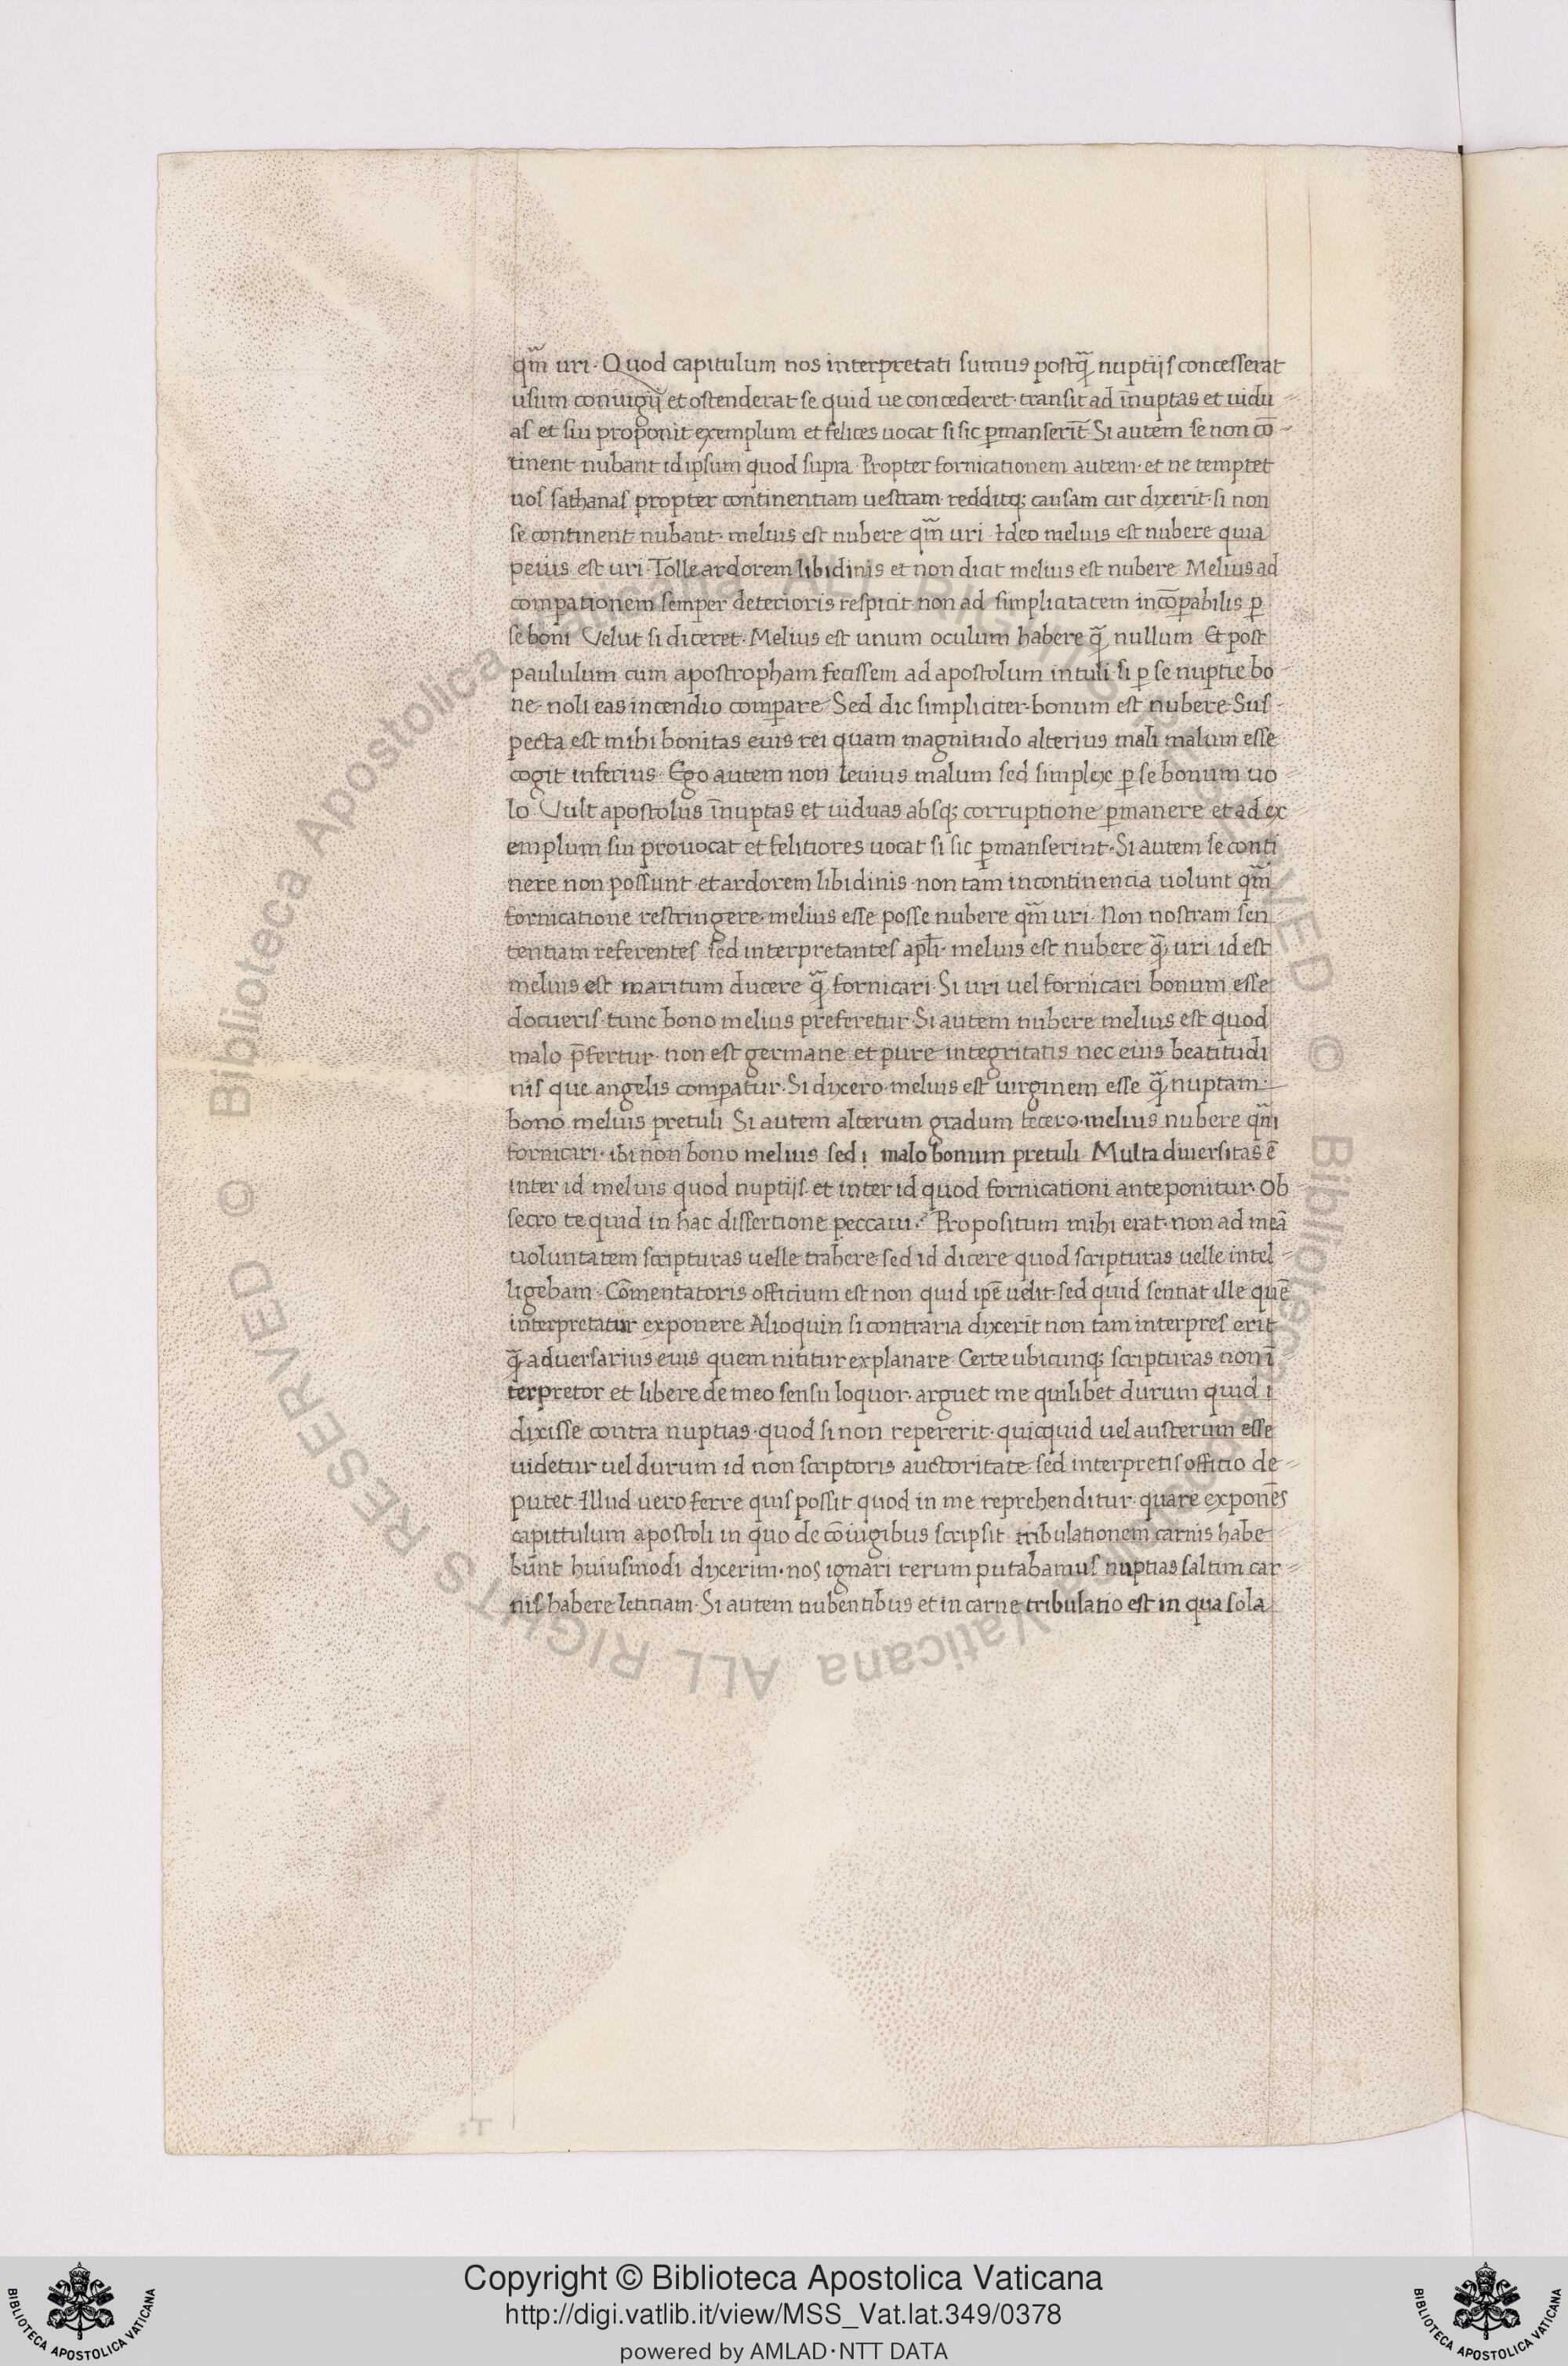 qm̃ uri · Quod capitulum nos interpretati sumus postq̃ nuptijs concesserat
usum coniugij et ostenderat se quid ue concederet · transit ad ĩnuptas et uidu
as et sui proponit exemplum et felices uocat si sic ꝑmanserĩt · Si autem se non cõ
tinent nubant id ipsum quod supra · Propter fornicationem autem · et ne temptet
uos sathanas propter continentiam uestram · redditq; causam cur dixerit · si non
se continent nubant · melius est nubere qm̃ uri · Ideo melius est nubere quia
peius est uri · Tolle ardorem libidinis et non dicit melius est nubere · Melius ad
compationem semper deterioris respicit non ad simplicitatem incõꝑabilis ꝑ
se boni Velut si diceret · Melius est unum oculum habere q̃ nullum Et post
paululum cum apostropham fecissem ad apostolum intuli · si ꝑ se nuptie bo
ne · noli eas incendio comꝑare Sed dic simpliciter · bonum est nubere · Sus
pecta est mihi bonitas eius rei quam magnitudo alterius mali malum esse
cogit inferius · Ego autem non leuius malum sed simplex ꝑ se bonum uo
lo Vult apostolus ĩnuptas et uiduas absq; corruptione ꝑmanere et ad ex
emplum sui prouocat et felitiores uocat si sic ꝑmanserint · Si autem se conti
nere non possunt · et ardorem libidinis · non tam incontinencia uolunt qm̃
fornicatione restringere · melius esse posse nubere qm̃ uri · Non nostram sen
tentiam referentes sed interpretantes apl̃i · melius est nubere q̃ uri id est
melius est maritum ducere q̃ fornicari · Si uri uel fornicari bonum esse
docueris tunc bono melius preferetur · Si autem nubere melius est quod
malo p̃fertur · non est germane et pure integritatis nec eius beatitudi
nis que angelis comꝑatur · Si dixero · melius est uirginem esse q̃ nuptam ·
bono melius pretuli Si autem alterum gradum fecero · melius nubere qm̃
fornicari · ibi non bono melius sed i malo bonum pretuli · Multa diuersitas ẽ
inter id melius quod nuptijs · et inter id quod fornicationi anteponitur · Ob
secro te quid in hac dissertione peccaui ? Propositum mihi erat · non ad meã
uoluntatem scripturas uelle trahere sed id dicere quod scripturas uelle intel
ligebam · Cõmentatoris offitium est non quid ipẽ uelit · sed quid sentiat ille quẽ
interpretatur exponere Alioquin si contraria dixerit non tam interpres erit
q̃ aduersarius eius quem nititur explanare · Certe ubicunq; scripturas non ĩ
terpretor et libere de meo sensu loquor · arguet me quilibet durum quid i
dixisse contra nuptias · quod si non repererit · quicquid uel austerum esse
uidetur uel durum id non scriptoris auctoritate sed interpretis offitio de
putet · Illud uero ferre quis possit quod in me reprehenditur · quare exponẽs
capittulum apostoli in quo de cõiugibus scripsit · tribulationem carnis habe
bunt huiusmodi dixerim · nos ignari rerum putabamus nuptias saltim car
nis habere letitiam · Si autem nubentibus et in carne tribulatio est in qua sola
Copyright © Biblioteca Apostolica Vaticana
http://digi.vatlib.it/view/MSS_Vat.lat.349/0378
powered by AMLAD·NTT DATA